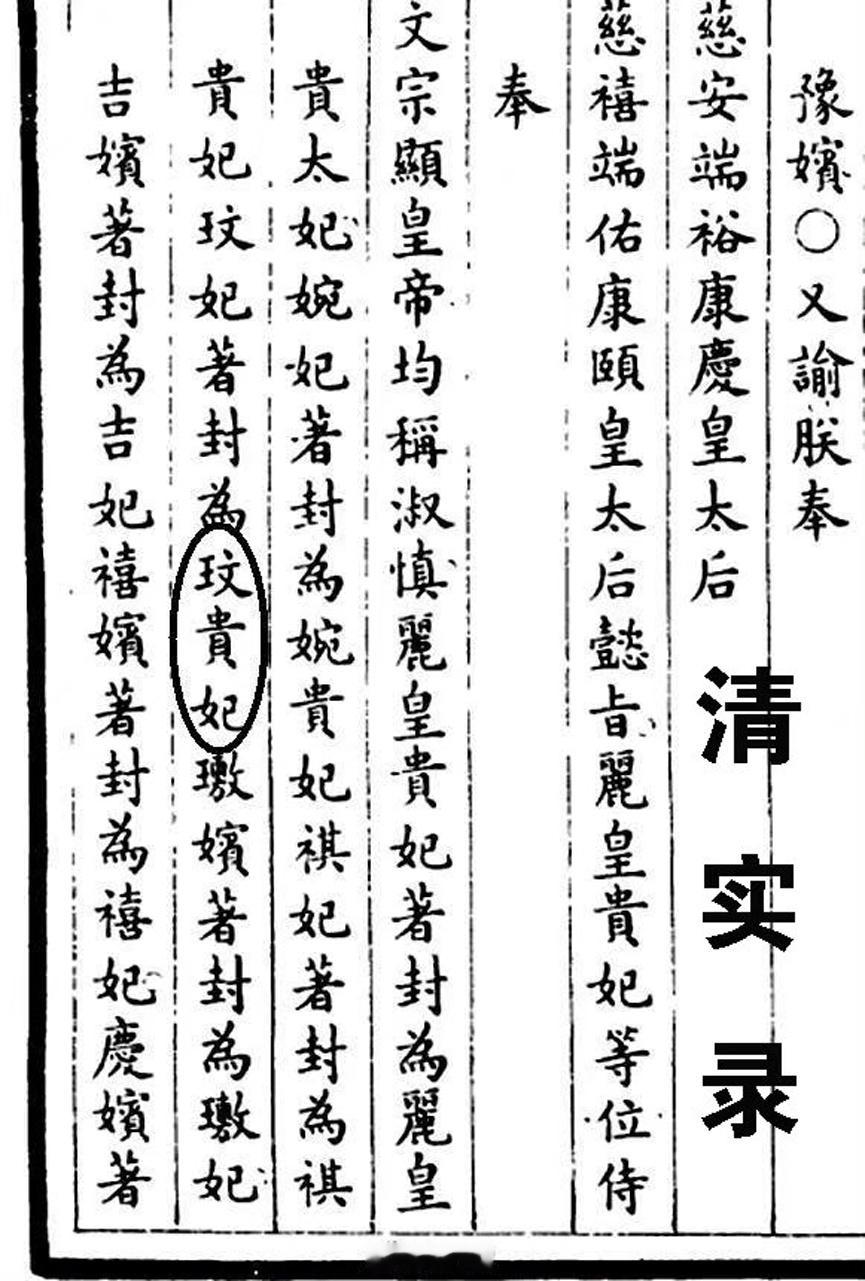 豫嬪○又諭朕奉
慈安端裕康慶皇太后
慈禧端佑康頤皇太后懿旨麗皇貴妃等位侍
奉
文宗顯皇帝均稱淑慎麗皇貴妃著封為麗皇
貴太妃婉妃著封為婉貴妃祺妃著封為祺
貴妃玟妃著封為玟貴妃璷嬪著封為璷妃
吉嬪著封為吉妃禧嬪著封為禧妃慶嬪著
清实录